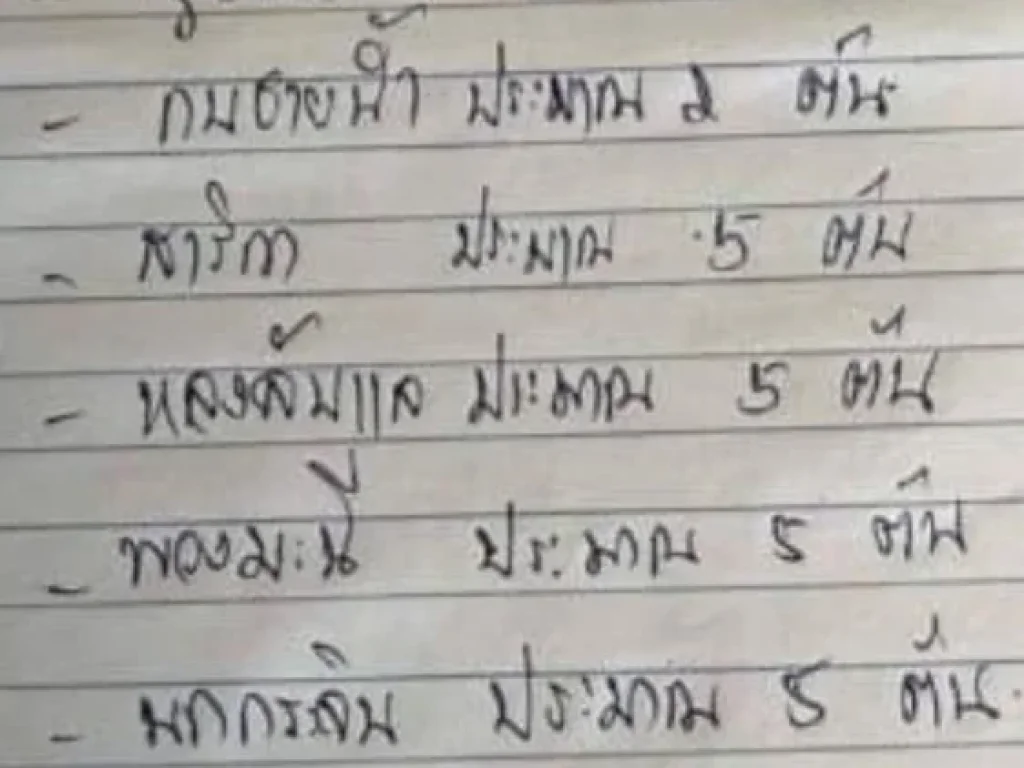 - กบชายน้ำ ประมาณ 2 ต้น
- สาริกา ประมาณ 5 ต้น
- หลงลับแล ประมาณ 5 ต้น
- พวงมะนี ประมาณ 5 ต้น
- นกกระจิบ ประมาณ 5 ต้น